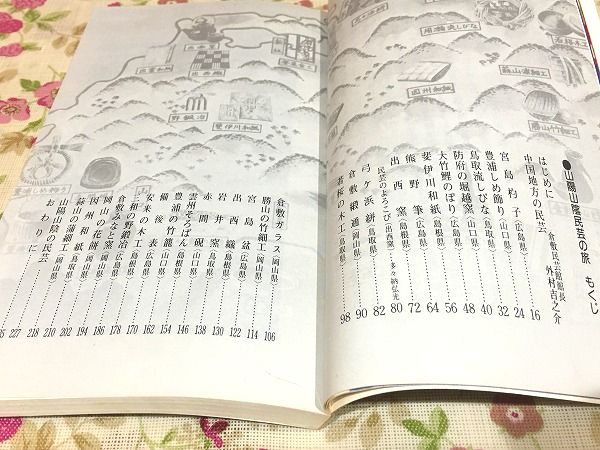 ●山陽山陰民芸の旅 もくじ
はじめに 倉敷民芸館館長 外村吉之介
中国地方の民芸 16
宮島杓子(広島県) 24
豊浦しめ飾り(山口県) 32
鳥取流しびな(鳥取県) 40
防府の堀越窯(山口県) 48
大竹鯉のぼり(広島県) 56
斐伊川和紙(島根県) 64
熊野筆(広島県) 72
出西窯(島根県) 80
民芸のよろこび(出西窯) 多々納弘光 82
弓ケ浜絣(鳥取県) 90
倉敷緞通(岡山県)
若桜の木工(鳥取県) 98
倉敷ガラス(岡山県) 106
勝山の竹細工(岡山県) 114
宮島盆(広島県) 122
出西織(島根県) 130
岩井窯(鳥取県) 138
赤間硯(山口県) 146
雲州そろばん(島根県) 154
豊浦の竹籠(山口県) 162
備後表(広島県) 170
安来の木工(島根県) 178
三和の野鍛冶(広島県) 186
倉敷みなし窯(岡山県) 194
岡山の花筵(岡山県) 202
因州和紙(鳥取県) 210
蒜山の蒲細工(岡山県) 218
山陽山陰の民芸 227
おわりに
野鍛冶
斐伊川和紙
出西織
出西窯
因州和紙
蒜山蒲細工
勝山竹細工
若桜木工
用瀬流しびな
豊浦しめ飾り